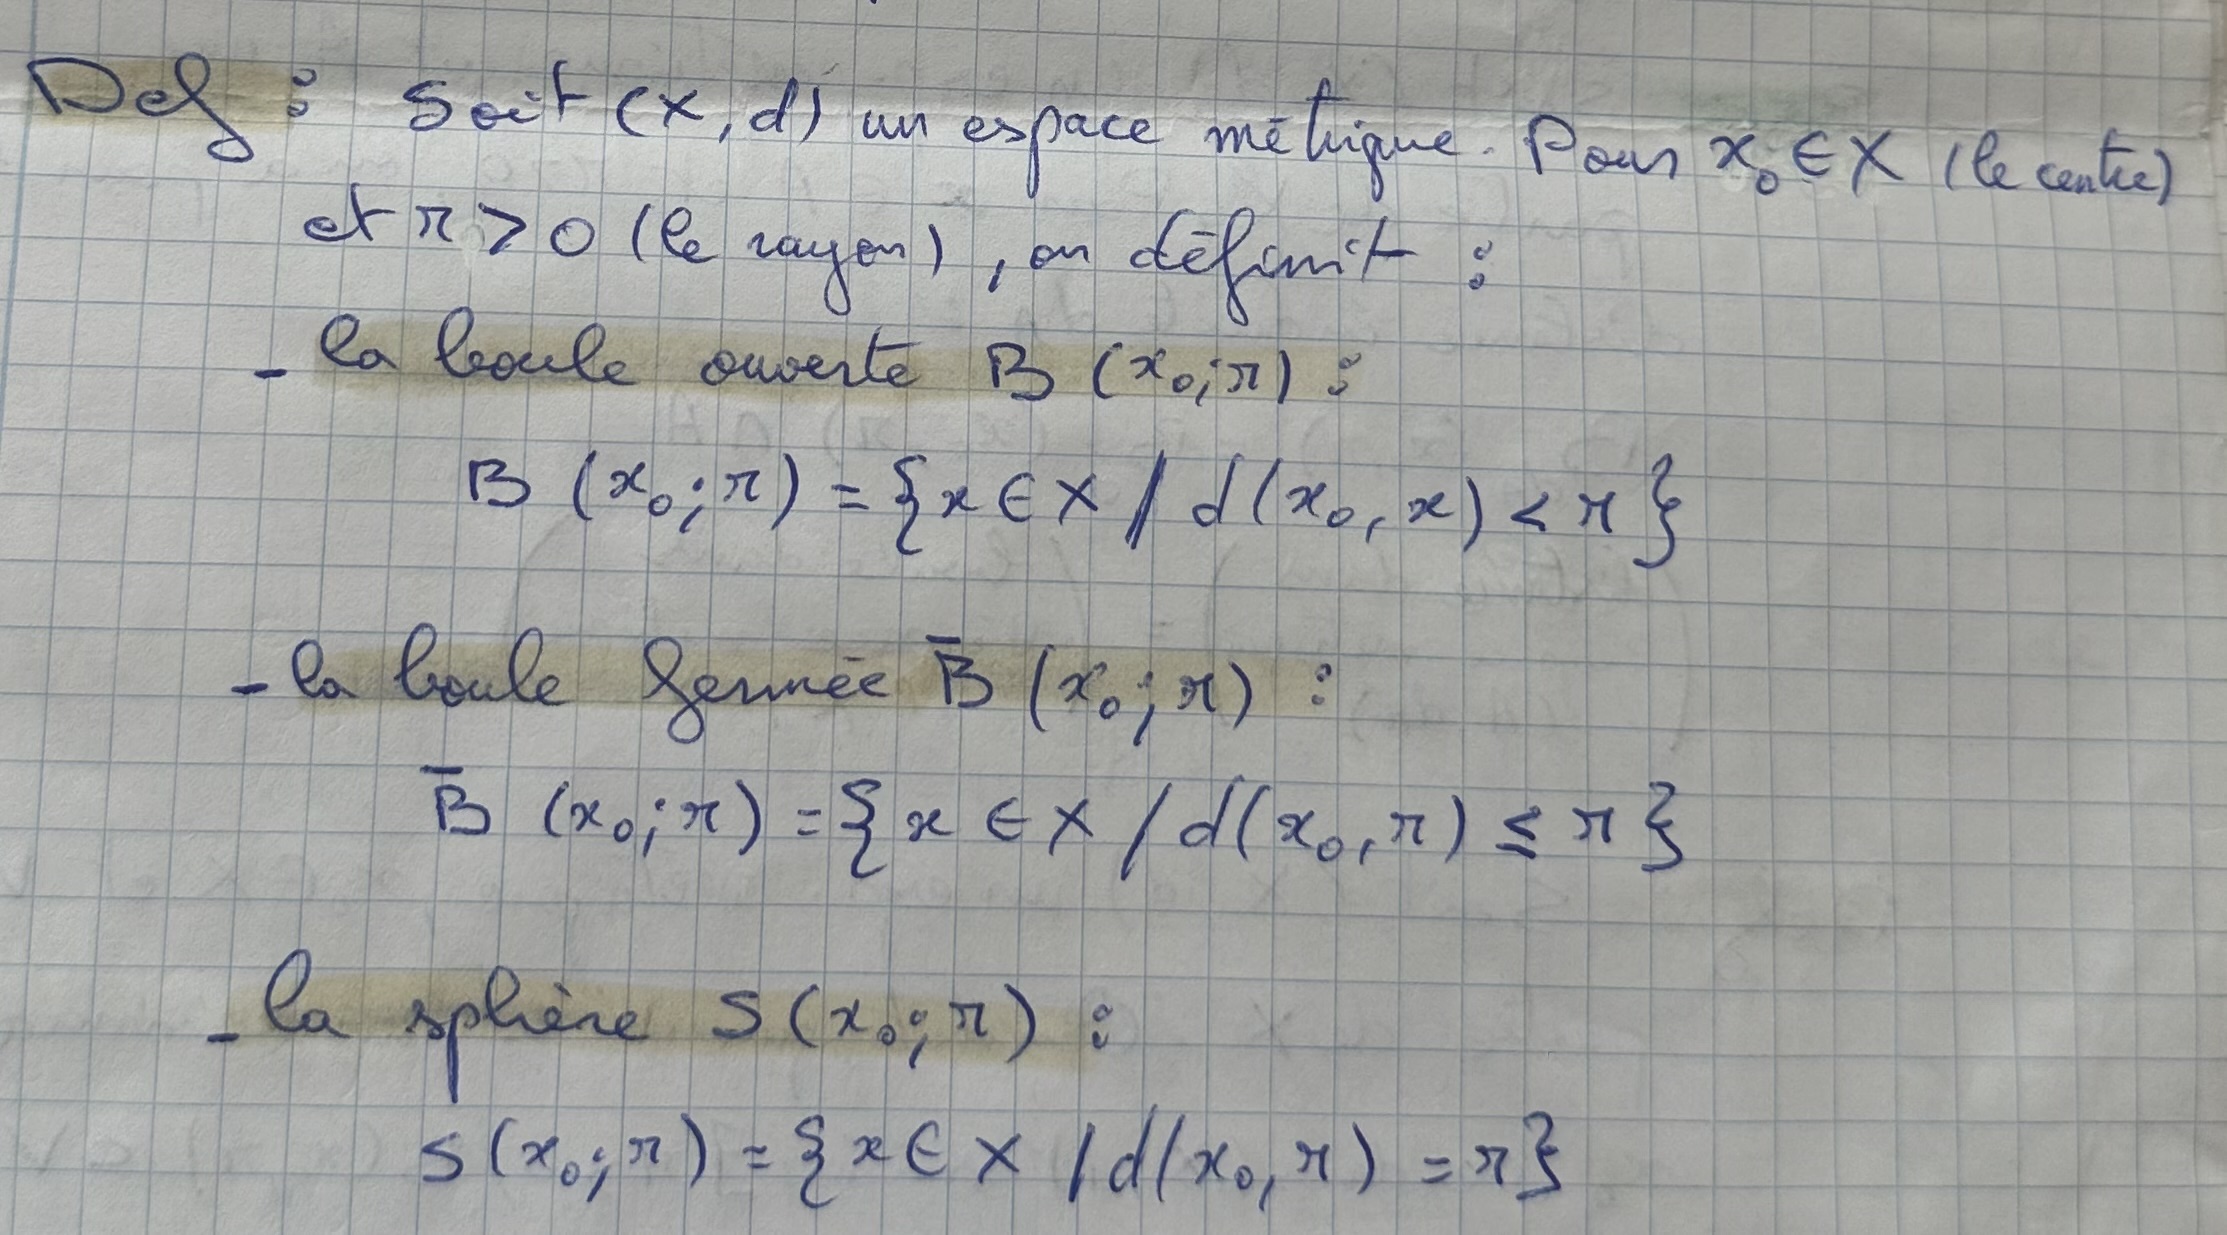 Def : Soit (X, d) un espace métrique. Pour x₀ ∈ X (le centre)
et r > 0 (le rayon), on définit :
- la boule ouverte B (x₀; r) :
B (x₀; r) = {x ∈ X / d(x₀, x) < r}
- la boule fermée B̄ (x₀; r) :
B̄ (x₀; r) = {x ∈ X / d(x₀, r) ≤ r}
- la sphère S (x₀; r) :
S (x₀; r) = {x ∈ X / d(x₀, r) = r}